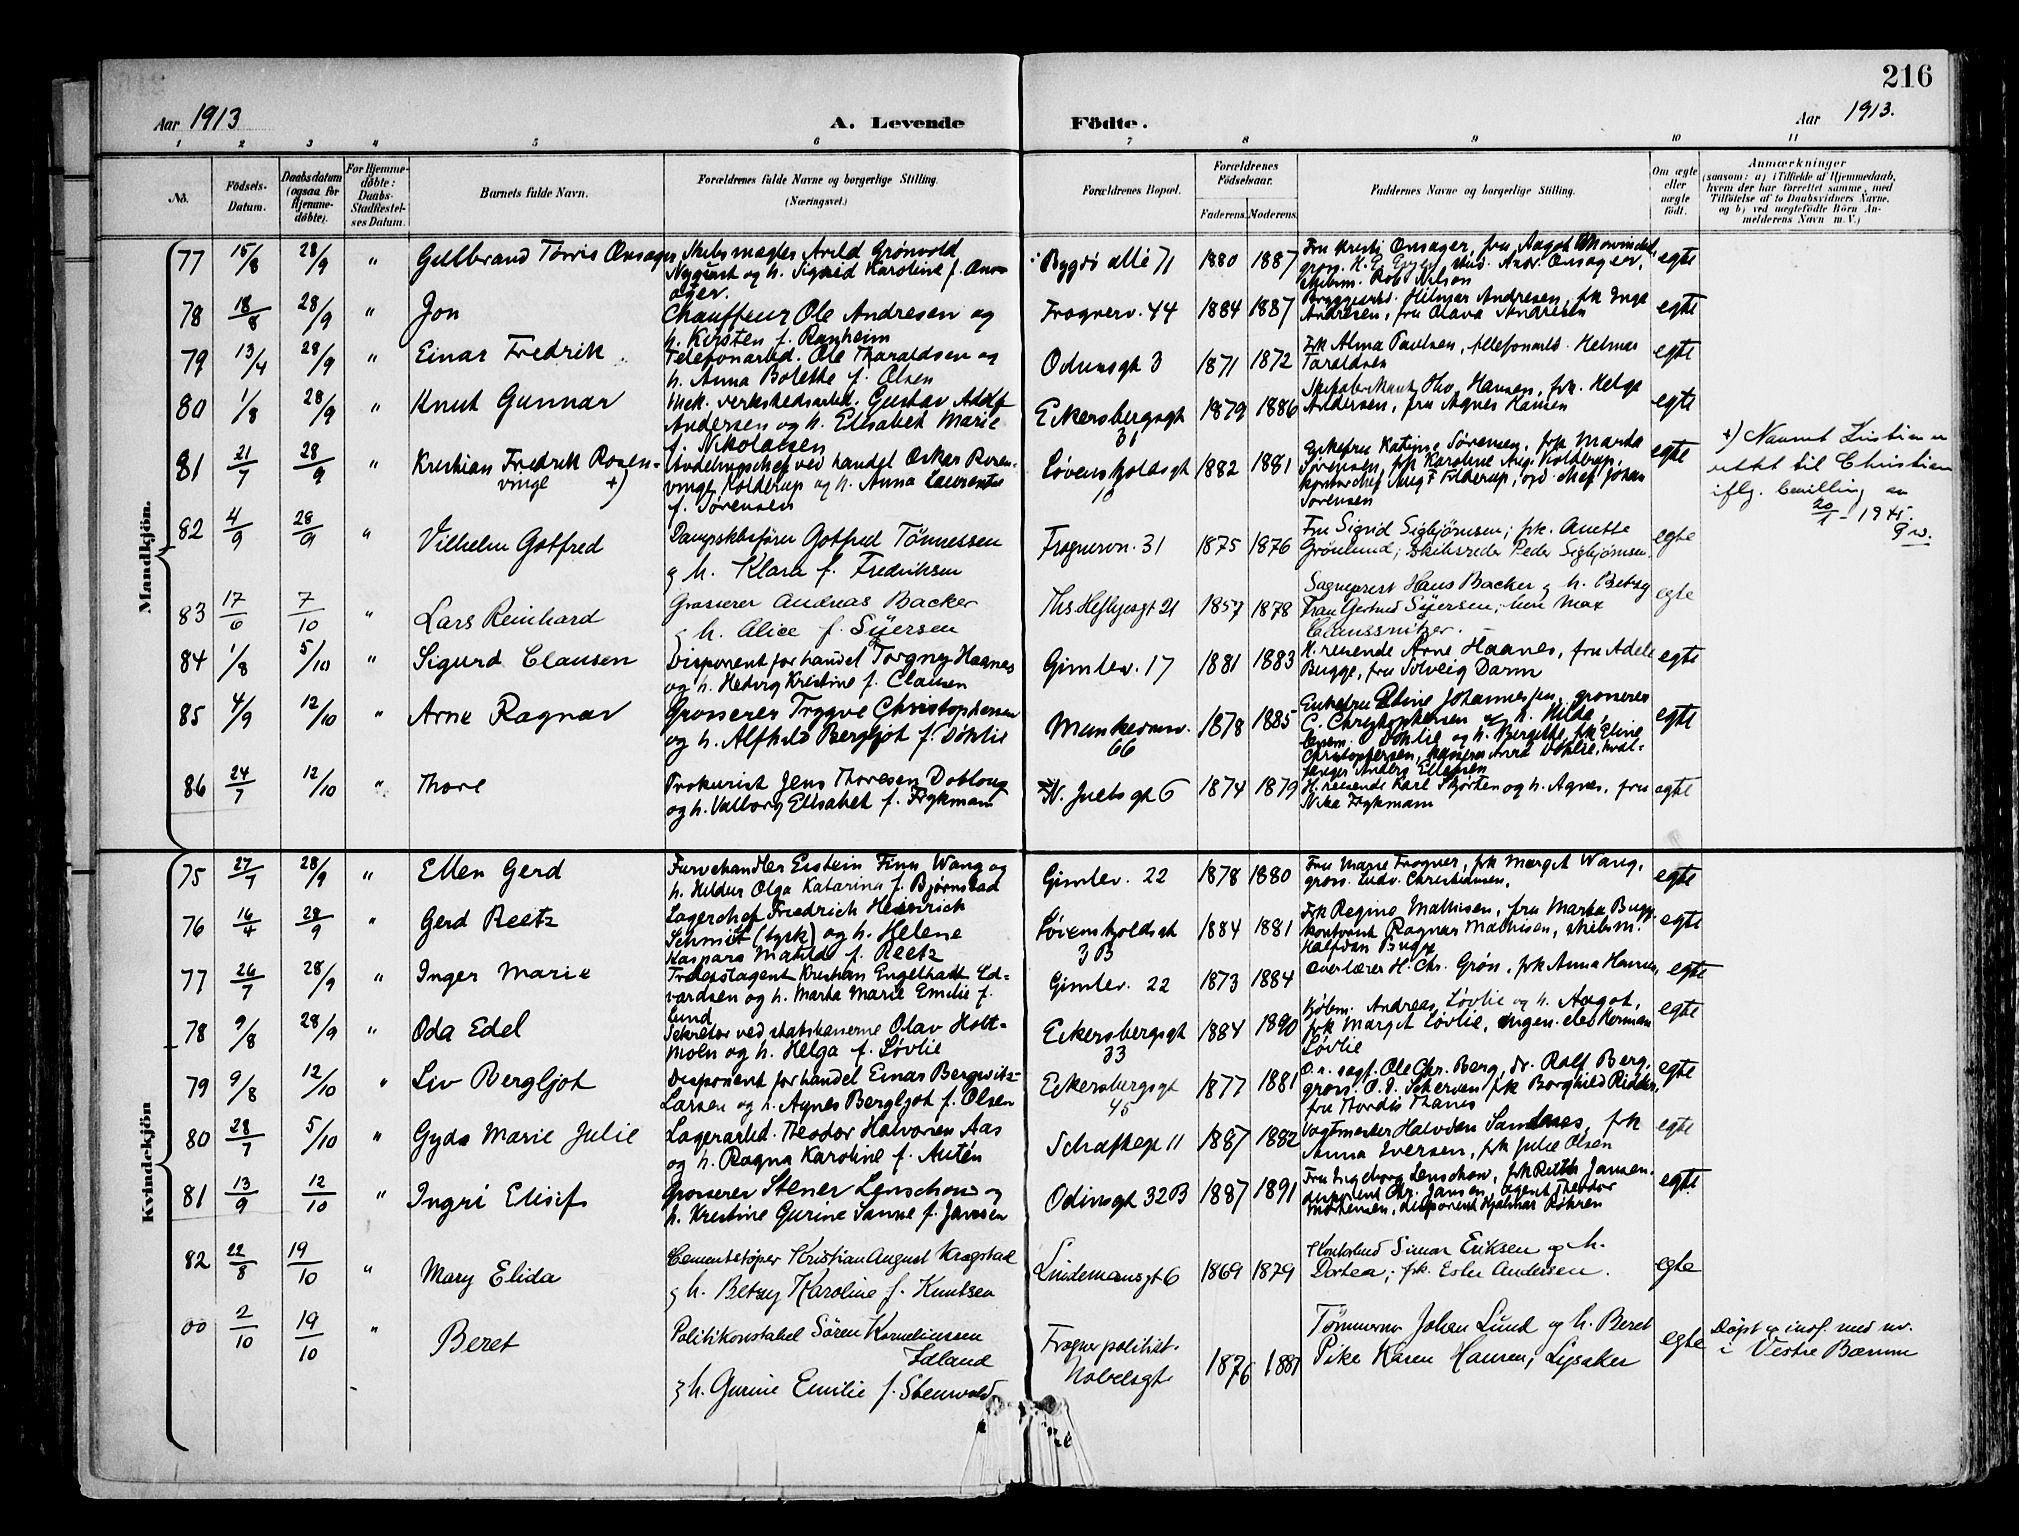 216
Aar 1913
A. Levende
Födte.
Aar 1913.
1 2 3 4 5 6 7 8 9 10 11
No.
Födsels-Datum.
Daabsdatum (ogsaa for Hjemmedøbte).
For Hjemmedøbte: Daabs-Stadfæstelses Datum.
Barnets fulde Navn.
Forældrenes fulde Navne og borgerlige Stilling. (Næringsvei.)
Forældrenes Bopæl.
Forældrenes Födselsaar.
Faderens. Moderens.
Faddernes Navne og borgerlige Stilling.
Om ægte eller uægte født.
Anmærkninger
(saasom: a) i Tilfælde af Hjemmedaab, hvem der har forrettet samme, med Tilföielse af to Daabsvidners Navne, og b) ved uægtefödte Börn Anmelderens Navn m. V.)
Mandkjön.
77 15/8 28/9 " Gulbrand Tönis Onsager Skibsmægler Arild Grönvold
Nyquist og h. Sigrid Karoline f. Onsager.
Bygdö alle 71 1880 1887 Fru Kristi Onsager, fru Aagot Mowinckel, egte
78 18/8 28/9 " Jon Chauffeur Ole Andresen og
h. Kirsten f. Ranheim
Frognerv. 44 1884 1887 Hilmar Andresen, frk Inga
Andresen, fru Olava Andresen egte
79 13/4 28/9 " Einar Fredrik Telefonarbd. Ole Tharaldsen og
h. Anna Bolette f. Olsen
Odinsgt 3 1871 1872 Frk Alma Paulsen, telefonarb. Helmar
Taraldsen egte
80 1/8 28/9 " Knut Gunnar Mek. verkstedsarbd. Gustav Adolf
Andersen og h. Elisabet Marie
f. Nikolaisen
Eckersbergsgt 31 1879 1886 Hansen, frk. Helga
Andersen, fru Agnes Hansen egte
81 21/7 28/9 " Kristian Fredrik Rosenvinge +) Avdelingschef ved handel Oskar Rosenvinge
Kolderup og h. Anna Laurentse
f. Sørensen
Løvenskoldsgt 10 1882 1881 Enkefru Katinge Sørensen, frk Marta
Sørensen, frk Karoline Aug. Kolderup,
Johan
Sørensen egte
+) Navnet
rettet til Christian
iflg. bevilling av
20/1 - 1945.
82 4/9 28/9 " Vilhelm Gotfred Dampskibsfører Gotfred Tönnessen
g h. Klara f. Fredriksen
Frognervn. 31 1875 1876 Fru Sigrid Sigbjörnsen; frk. Anette
Grönlund; skibsreder Peder Sigbjörnsen. egte
83 17/6 7/10 " Lars Reinhard Grosserer Andreas Backer
g h. Alice f. Syersen
Ths Heftyesgt 21 1857 1878 Sogneprest Hans Backer g h. Betsy
Fru Gertrud Syersen; herr Max
Claussnitzer. egte
84 1/8 5/10 " Sigurd Clausen Disponent for handel Torgny Haanes
og h. Hedvig Kristine f. Clausen
Gimlev. 17 1881 1883 H. reisende Arne Haanes, fru Adele
Bugge, fru Solveig Dann egte
85 4/9 12/10 " Arne Ragnar Grosserer Trygve Christophersen
og h. Alfhild Bergljot f. Döhlie
Munkedamsv. 66 1878 1885 Enkefru Eline Johannesen, grosserer
C. Christophersen og h. Hilda,
Döhlie og h. Bergitte, frk Eline
Christophersen, Döhlie,
Anders Ellefsen egte
86 24/7 12/10 " Thore Prokurist Jens Thoresen Dobloug
og h. Valborg Elisabet f. Frykmann
N. Juels gt 6 1874 1879 H. reisende Karl Skjörten og h. Agnes, fru
Nika Frykmann egte
Kvindekjön
75 27/7 28/9 " Ellen Gerd Farvehandler Eistein Finn Wang og
h. Hildur Olga Katarina f. Bjørnstad
Gimlev. 22 1878 1880 Fru Marie Frogner, frk Margit Wang,
gross. Ludv. Christiansen, egte
76 16/4 28/9 " Gerd Reetz Lagerchef Friedrich Heinrich
Schmidt (tysk) og h. Helene
Kaspara Matilde f. Reetz
Løvenskjoldsgt 3 B 1884 1881 Frk Regine Mathisen, fru Marta Bugge
Ragnar Mathisen, skibsm.
Halfdan Bugge egte
77 26/7 28/9 " Inger Marie Trælastagent Kristian Engelhardt Edvardsen
og h. Marta Marie Emilie f.
Lund
Gimlev. 22 1873 1884 Overlærer H. Chr. Grön, frk Anna Hansen, egte
78 9/8 28/9 " Oda Edel Sekretær ved statsbanerne Olav Holt-
Moen og h. Helga f. Løvlie
Eckersbergsgt 33 1884 1890 Kjøbm. Andreas Løvlie og h. Aagot,
frk Margit Løvlie, ingen. elev Herman
Løvlie egte
79 9/8 12/10 " Liv Bergljot Disponent for handel Einar Bergwitz-
Larsen og h. Agnes Bergljot f. Olsen
Eckersbergsgt 45 1877 1881 O.r. sagf. Ole Chr. Berg, dr. Rolf Berg,
gross. O. J. Scherven, frk Borghild Ridder,
fru Thordis Thanes egte
80 28/7 5/10 " Gyda Marie Julie Lagerarbd. Theodor Halvorsen Aas
og h. Ragna Karoline f. Autén
Schafteløp 11 1887 1882 Vagtmester Halvdan Sandnes, frk
Anna Iversen, frk Julie Olsen egte
81 13/9 12/10 " Ingri Elisif Grosserer Stener Lenschow og
h. Kristine Gurine Sanne f. Jansen
Odinsgt 32 B 1887 1891 Fru Ingeborg Lenschow, frk Ruth Jansen,
disponent Chr. Jansen, agent Theodor
Mortensen, disponent Hjalmar Röhren egte
82 22/8 19/10 " Mary Elida Cementstøper Kristian August Kragstad
g h. Betsy Karoline f. Knutsen
Lindemansgt 6 1869 1879 Simon Eriksen og h.
Dortea; frk. Ester Andersen. egte
00 2/10 19/10 " Beret Politikonstabel Sören Korneliussen
Idland
g h. Gurine Emilie f. Stenvold
Frogner politist.
Nobelsgt 1876 1881 Tömmerm. Johan Lund og h. Beret
Pike Karen Hansen, Lysaker egte
Døpt g indf. med nr.
i Vestre Bærum